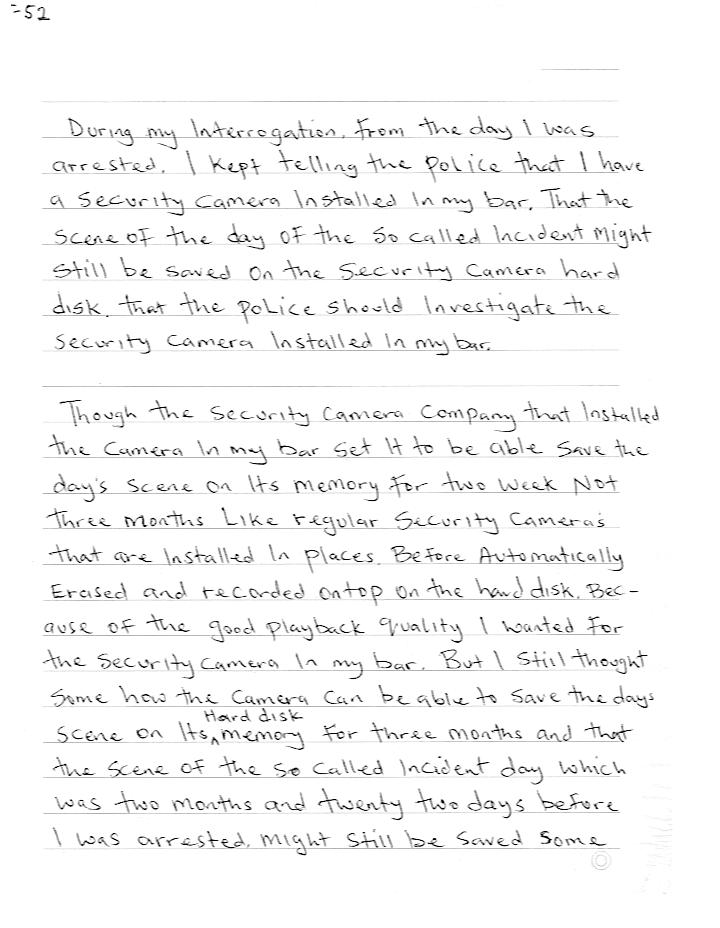 -52
During my Interrogation, from the day I was
arrested. I kept telling the police that I have
a Security Camera Installed In my bar. That the
scene of the day of the so called Incident Might
still be saved on the Security Camera hard
disk. that the police should Investigate the
Security Camera Installed In my bar.
Though the Security Camera Company that Installed
the Camera In my bar set It to be able save the
day's scene on Its memory for two week Not
three months Like regular Security Camera's
that are Installed In places. Before Automatically
Erased and recorded ontop on the hard disk. Bec-
ause of the good playback quality I wanted for
the Security Camera In my bar. But I still thought
Some how the Camera Can be able to save the days
scene on Its Hard disk memory for three months and that
the scene of the so called Incident day which
was two months and twenty two days before
I was arrested, might still be saved some